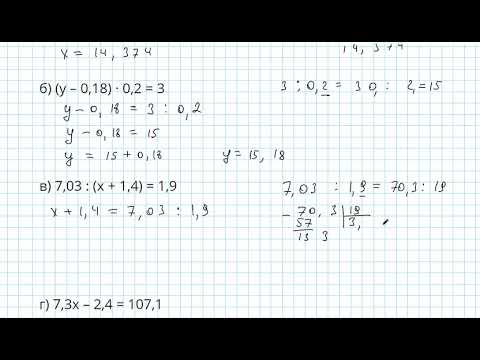 x = 14, 374
б) (y – 0,18) · 0,2 = 3
3 : 0,2 = 30 : 2, = 15
y – 0, 18 = 3 : 0,2
y – 0, 18 = 15
y = 15 + 0,18
y = 15, 18
в) 7,03 : (x + 1,4) = 1,9
7,03 : 1,9 = 70,3 : 19
x + 1,4 = 7,03 : 1,9
– 70, 3 | 19
57 | 3,
13 3
г) 7,3x – 2,4 = 107,1